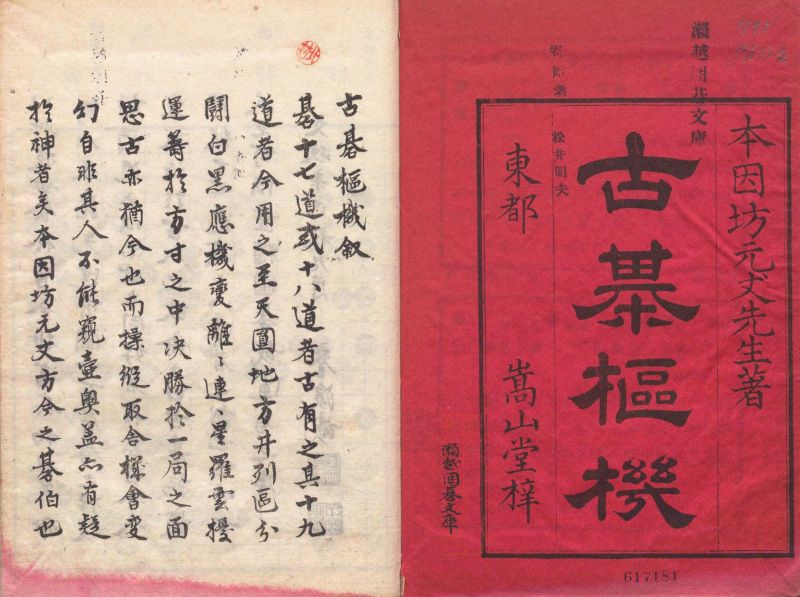 瀬越囲碁文庫
寄贈者 松井明夫
本因坊元丈先生著
古棊樞機
東都 嵩山堂梓
瀬越囲碁文庫
617181
古碁樞機叙
碁十七道或十八道者古有之其十九
道者今用之至天圓地方井列區分
鬪白黒應機變離〻連〻星羅雲擾
運籌於方寸之中決勝於一局之面
思古亦猶今也而操縱取舎機會変
幻自非其人不能窺壷奥盖亦有疑
於神者矣本因坊元丈方今之碁伯也